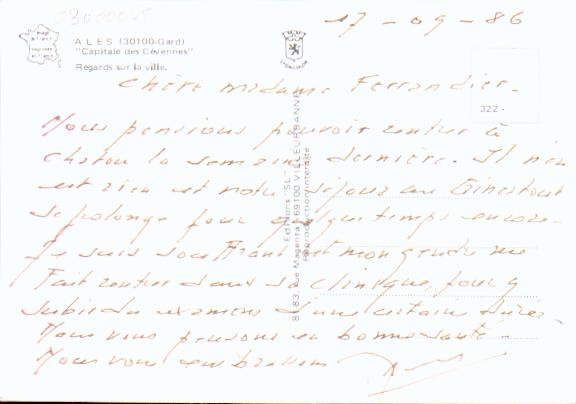 17-09-86
ALES (30100-Gard)
"Capitale des Cévennes"
Regards sur la ville.
Chère Madame Ferrandier.
322 -
Nous pensions pouvoir rentrer à
Chatou la semaine dernière. Il n'en
est rien et notre séjour au Ginestout
se prolonge pour quelque temps encore.
Je suis souffrant et mon gendre me
fait entrer dans sa clinique, pour y
subir du examens d'une certaine durée.
Nous vous pensons en bonne santé.
Nous vous embrassons
Editions "SL"
81-83, rue Magenta - 69100 VILLEURBANNE
Reproduction interdite